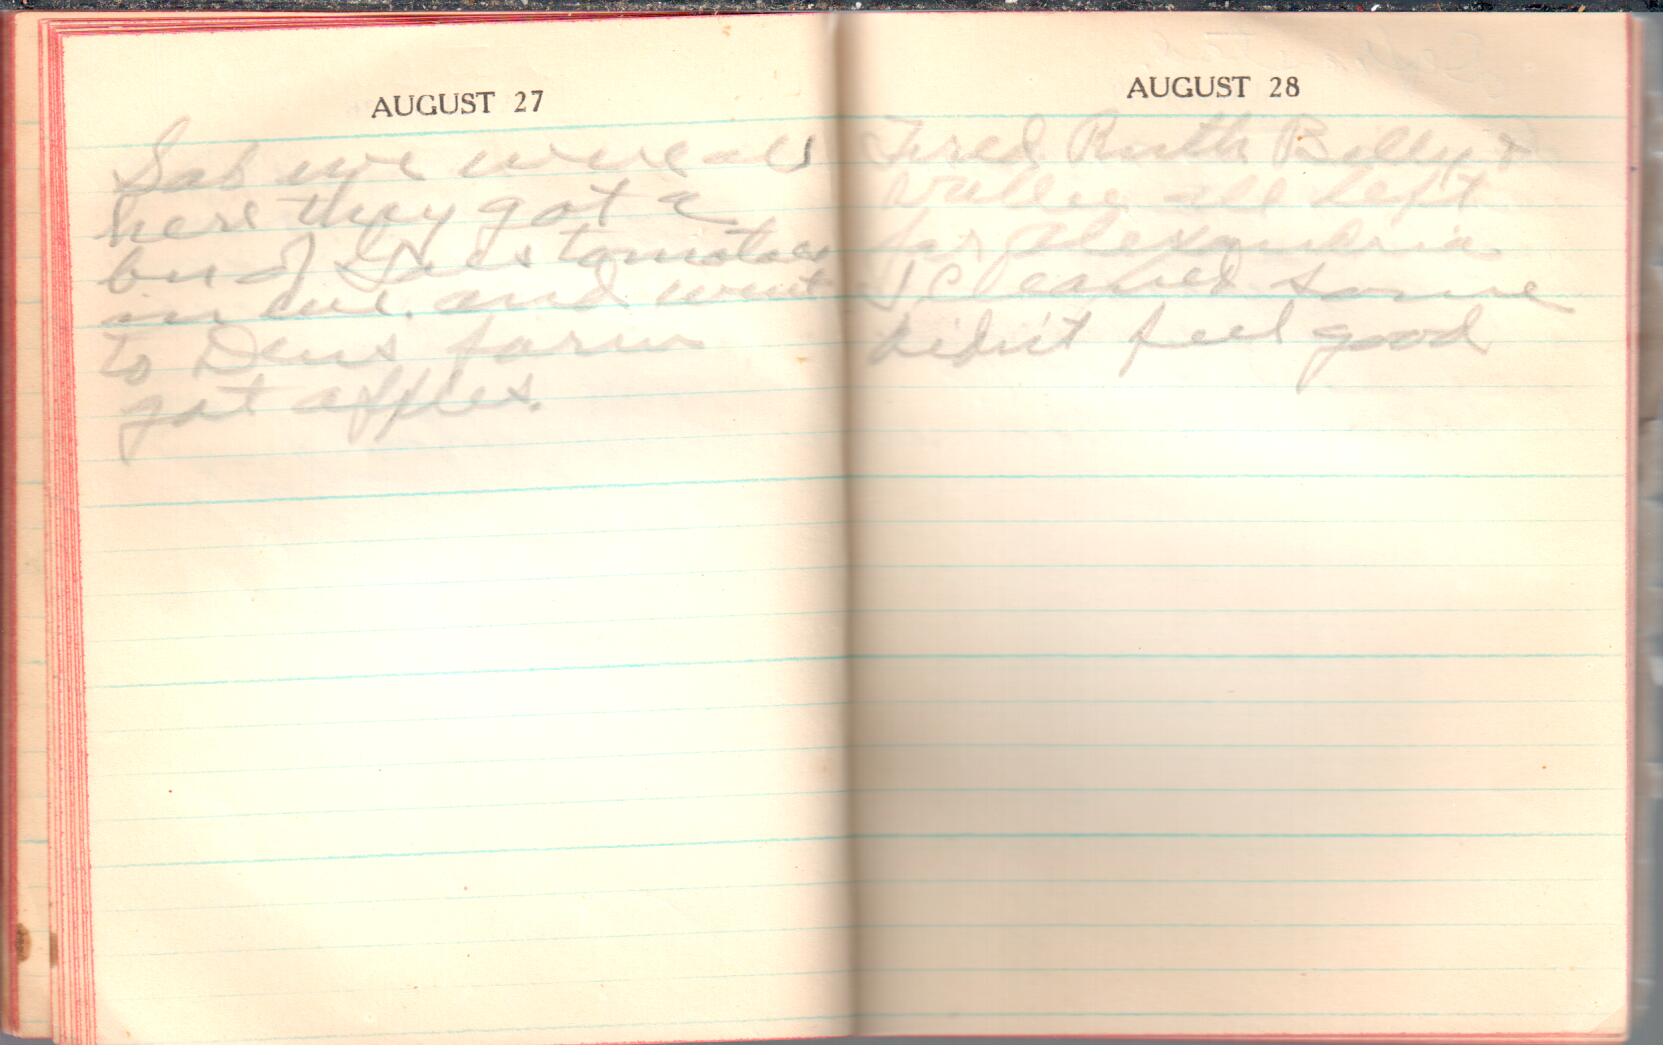 AUGUST 27
Sat we were all
here they got a
bu of tomatoes
in and went
to Dens farm
got apples.
AUGUST 28
Fred Ruth Billy &
all left
for Alexandria
I cleaned some
didn't feel good